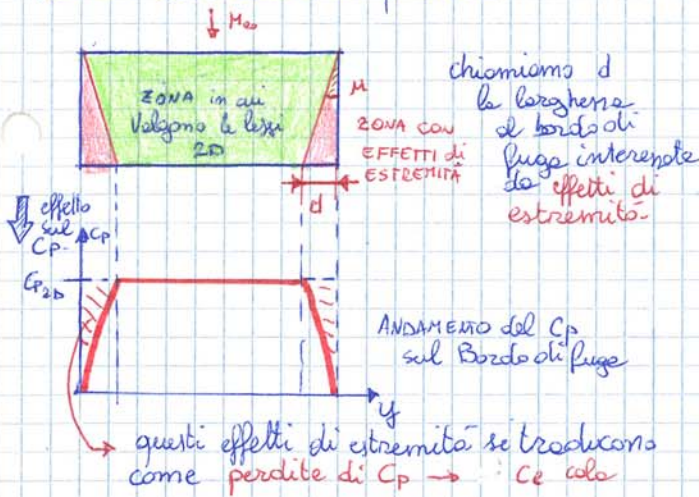 M∞
ZONA in cui
Valgono le leggi
2D
μ
ZONA CON
EFFETTI di
ESTREMITÀ
d
chiamiamo d
la larghezza
al bordo di
fuga interessata
da effetti di
estremità-
effetto
sul
Cp-
Cp
Cp2D
ANDAMENTO del Cp
sul Bordo di fuga
y
questi effetti di estremità si traducono
come perdite di Cp → Ce cala